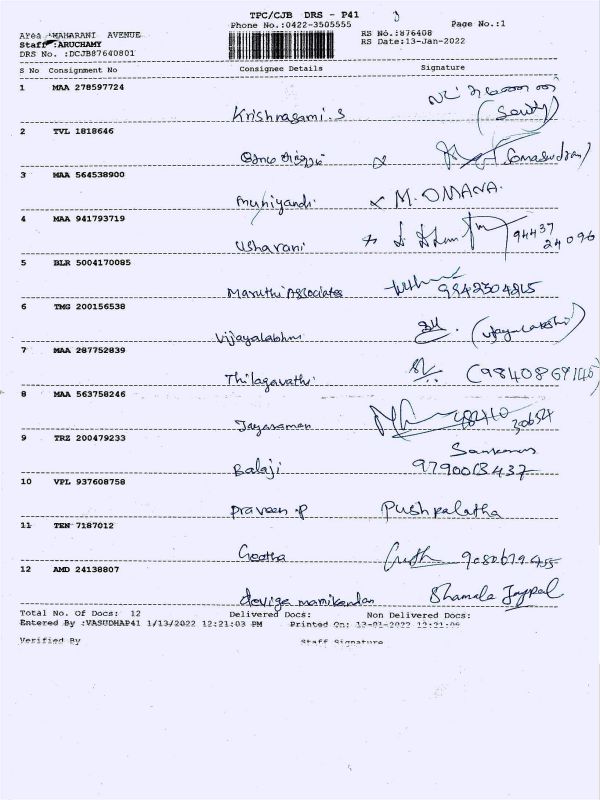 TPC/CJB DRS - P41
Phone No.:0422-3505555 Page No.:1
Area :MAHARANI AVENUE RS No.:876408
Staff :ARUCHAMY RS Date:13-Jan-2022
DRS No. :DCJB87640801
S No Consignment No Consignee Details Signature
1 MAA 278597724
Krishnasami.S
2 TVL 1818646
3 MAA 564538900
Muniyandi M. OMANA.
4 MAA 941793719
Usharani 94437
24096
5 BLR 5004170085
Maruthi Associates 9842304815
6 TMG 200156538
Vijayalakshmi
7 MAA 287752839
Thilagavathi
8 MAA 563758246
Jayaraman
9 TRZ 200479233
Balaji 9790013437
10 VPL 937608758
Praveen.P Pushpalatha
11 TEN 7187012
Geetha
12 AMD 24138807
deviga manikandan Shamala Jaypal
Total No. Of Docs: 12 Delivered Docs: Non Delivered Docs:
Entered By :VASUDHAP41 1/13/2022 12:21:03 PM Printed On: 13-01-2022 12:21:06
Verified By Staff Signature